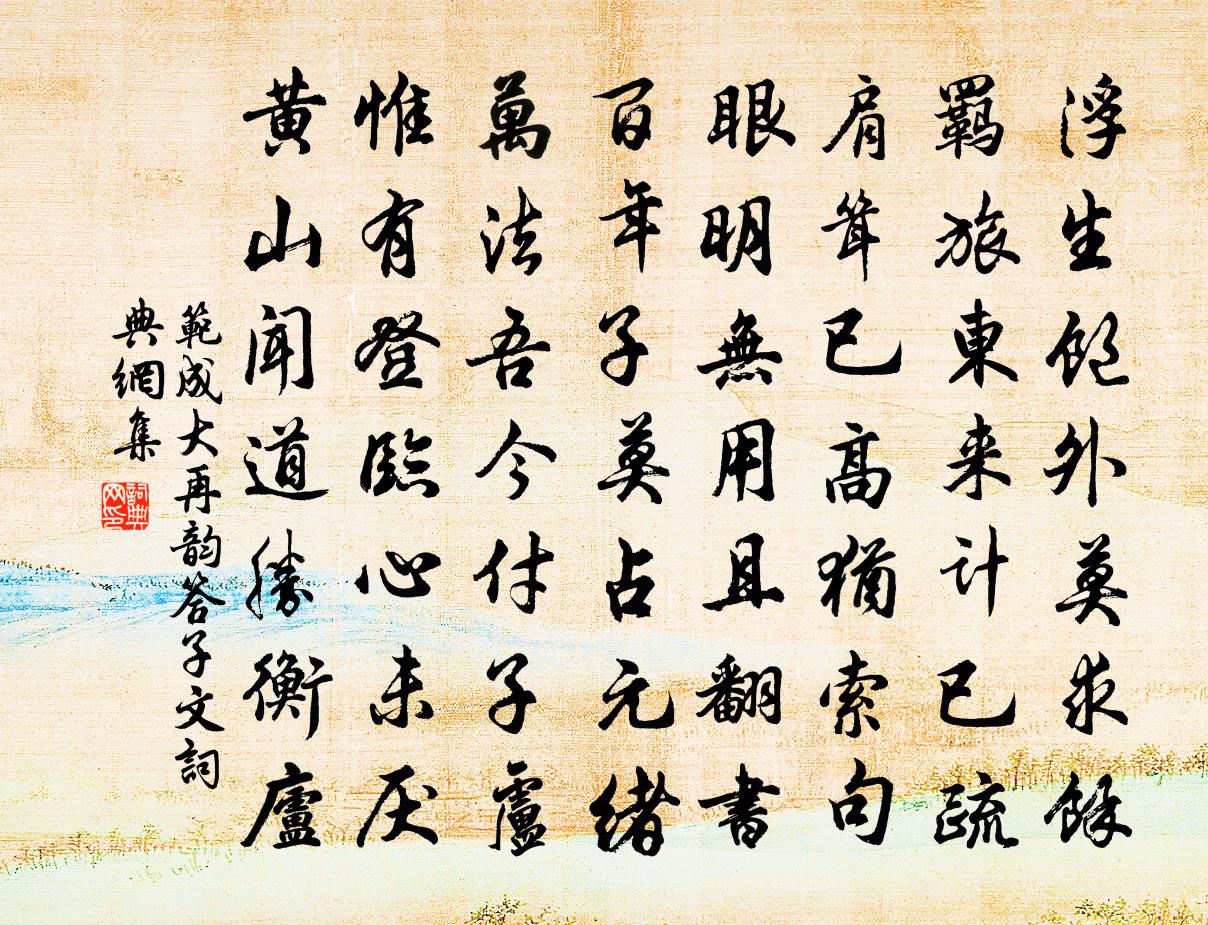 浮生飽外莫求餘
羇旅東来计已疏
肩耸已高猶索句
眼明無用且翻書
百年子莫占元绪
萬法吾今付子虛
惟有登臨心未厌
黄山闻道勝衡廬
範成大再韵答子文詞
典網集
詞典网印